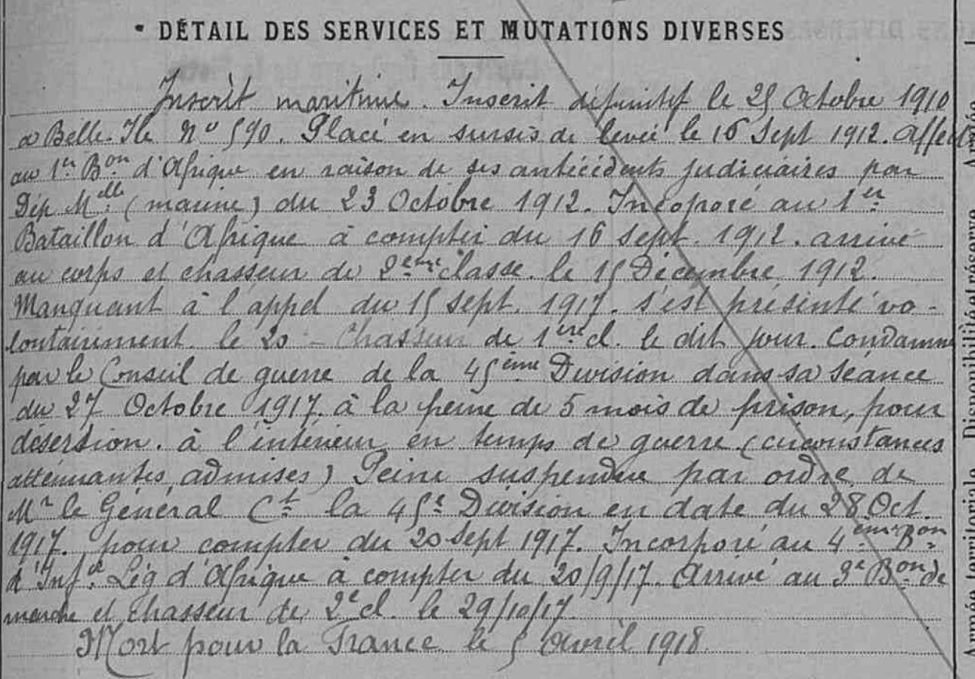 • DÉTAIL DES SERVICES ET MUTATIONS DIVERSES
Inscrit maritime. Inscrit définitif le 25 Octobre 1910
a Belle-Ile N° 590. Placé en sursis de levée le 16 Sept 1912. affecté
au 1er Bon d'Afrique en raison de ses antécédents judiciaires par
Dép. Mlle (marine) du 23 Octobre 1912. Incoporé au 1er
Bataillon d'Afrique à compter du 16 Sept. 1912. arrivé
au corps et chasseur de 2eme classe. le 15 Décembre 1912.
Manquant à l'appel du 15 Sept. 1917. s'est présenté vo-
lontairement. le 20 - Chasseur de 1ere cl. le dit jour. Condamné
par le Conseil de guerre de la 45ème Division dans sa séance
du 27 Octobre 1917 à la peine de 5 mois de prison, pour
désertion. à l'intérieur en temps de guerre (circonstances
atténuantes, admises) Peine suspendue par ordre de
Mr le Général Ct la 45e Division en date du 28 Oct.
1917. pour compter du 20 Sept 1917. Incorporé au 4eme Bon
d'Infie Lég d'Afrique à compter du 20/9/17. Arrivé au 3e Bon de
marche et chasseur de 2e cl. le 29/10/17.
Mort pour la France le 5 Avril 1918.